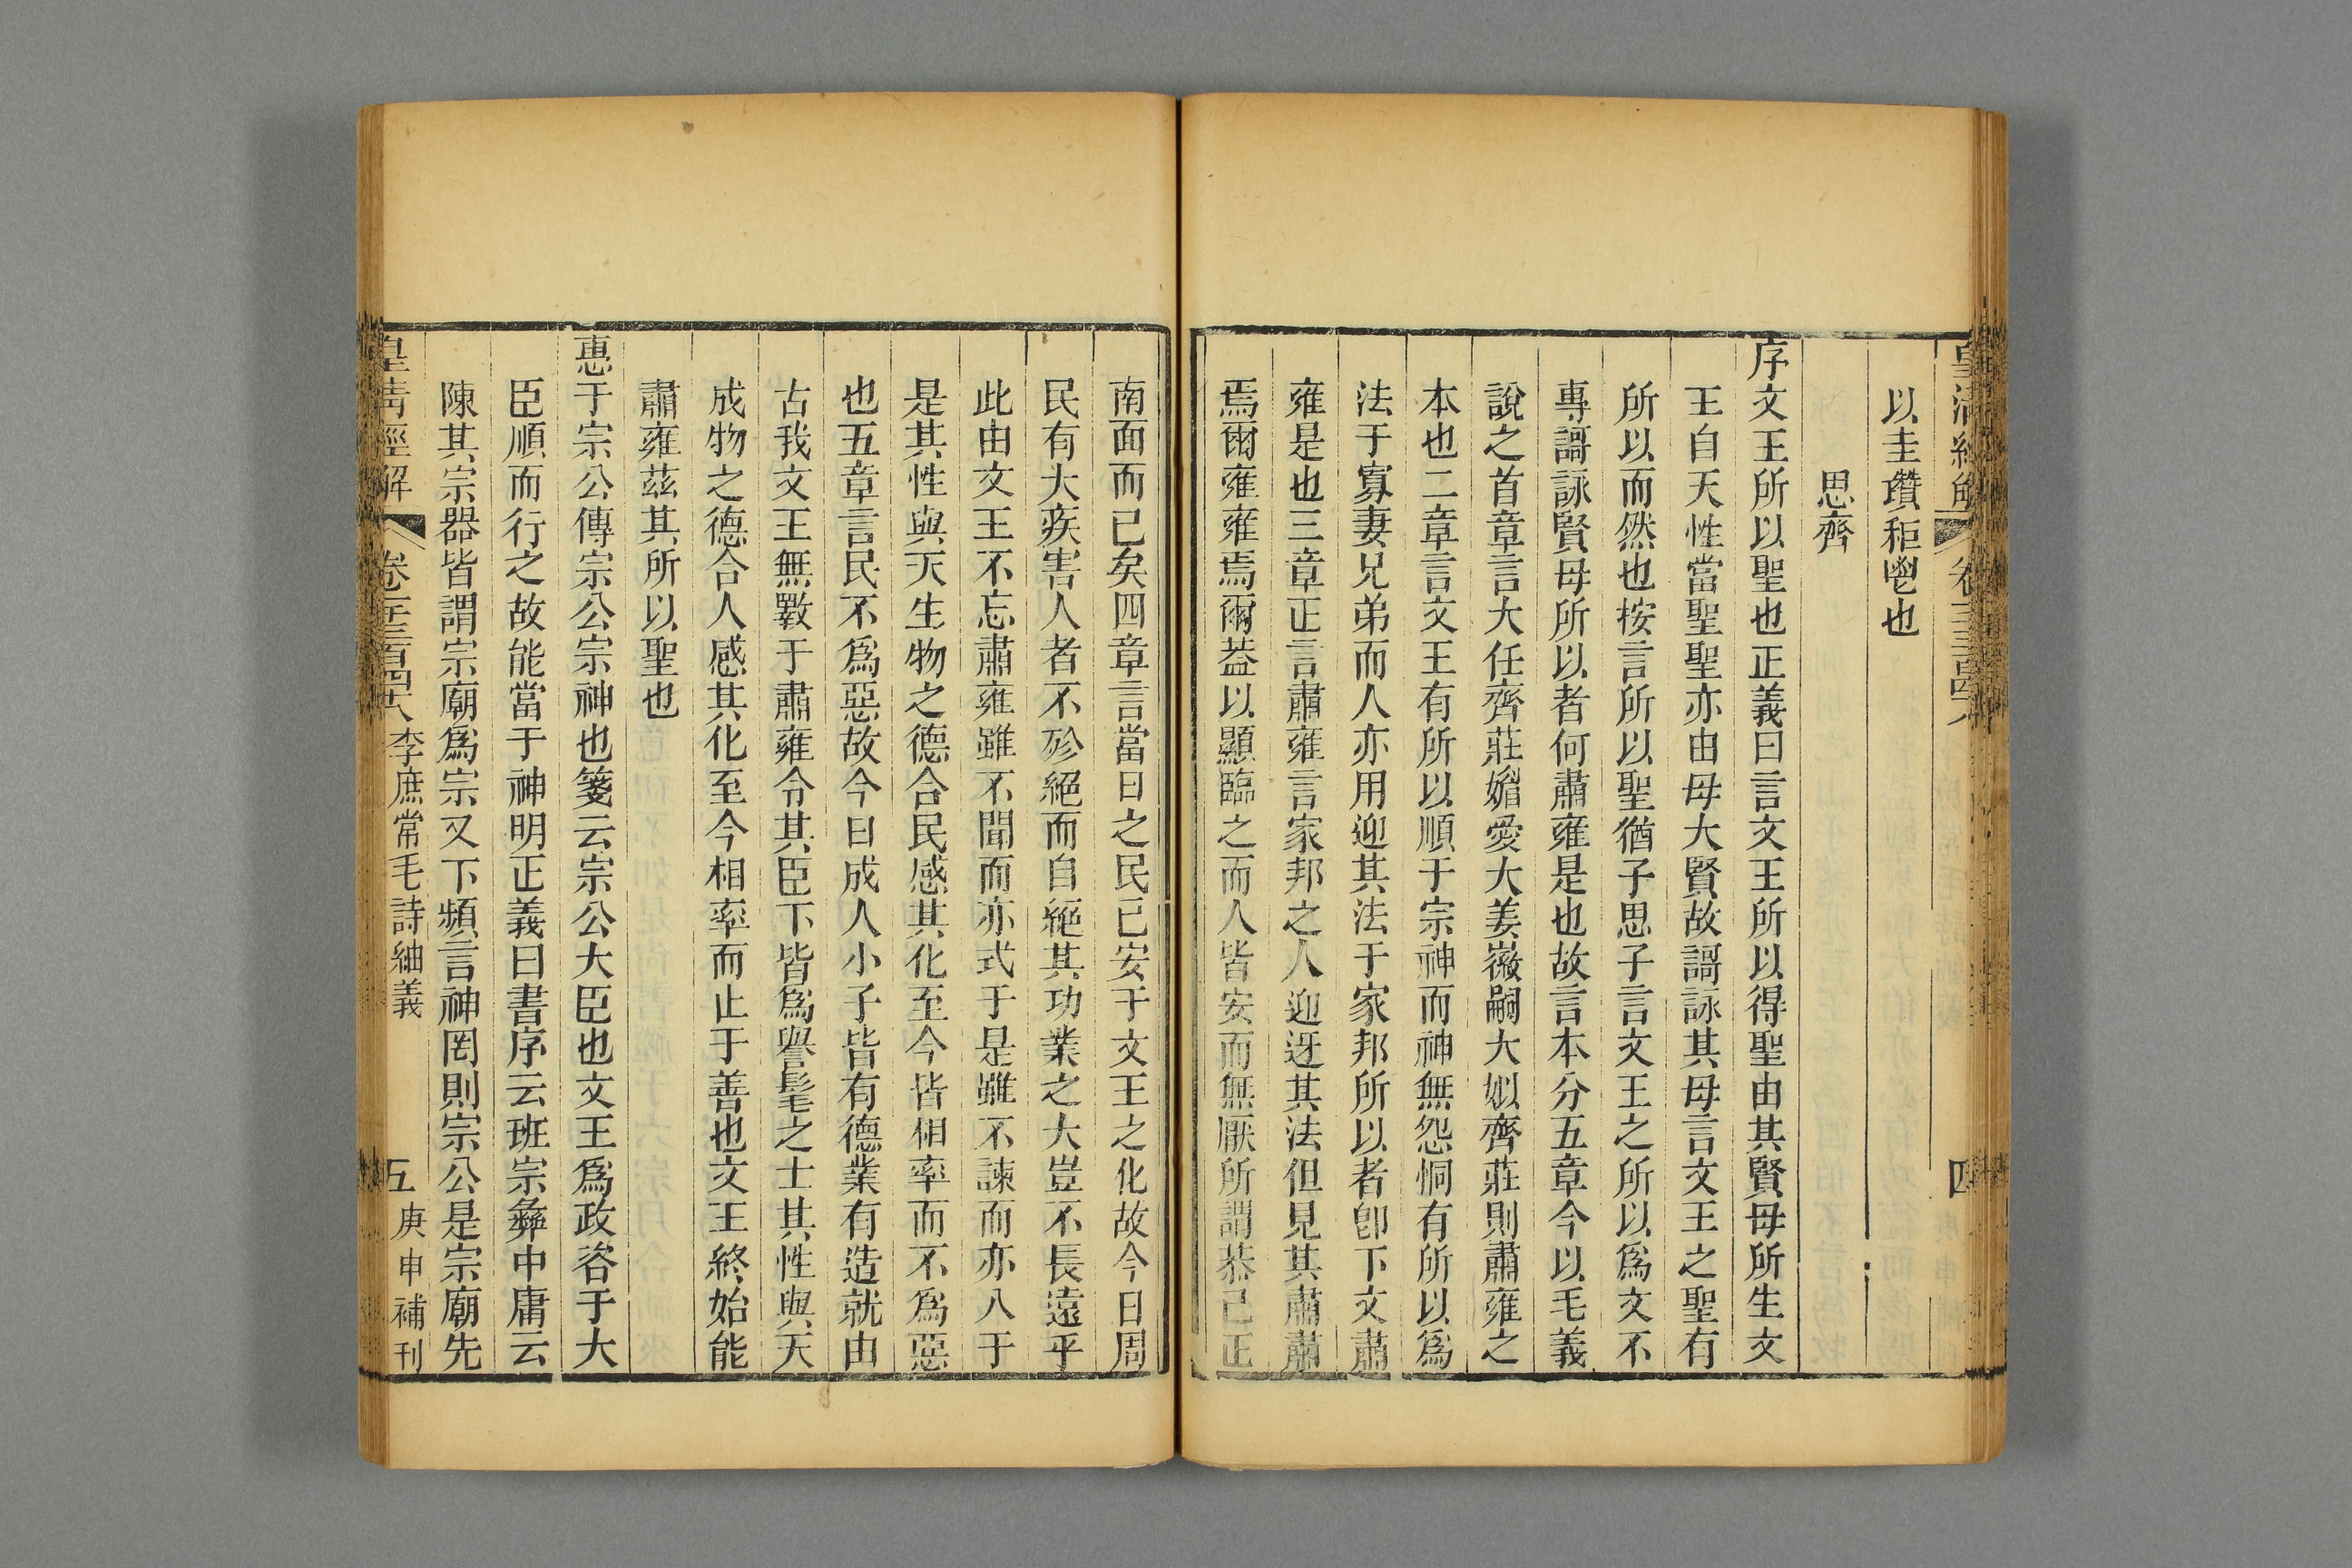 以圭瓚秬鬯也
思齊
序文王所以聖也正義曰言文王所以得聖由其賢母所生文
王自天性當聖聖亦由母大賢故謌詠其母言文王之聖有
所以而然也按言所以聖猶子思子言文王之所以爲文不
專謌詠賢母所以者何肅雍是也故言本分五章今以毛義
說之首章言大任齊莊媚愛大姜徽嗣大姒齊莊則肅雍之
本也二章言文王有所以順于宗神而神無怨恫有所以爲
法于寡妻兄弟而人亦用迎其法于家邦所以者卽下文肅
雍是也三章正言肅雍言家邦之人迎迓其法但見其肅肅
焉爾雍雍焉爾葢以顯臨之而人皆安而無厭所謂恭己正
南面而已矣四章言當日之民已安于文王之化故今日周
民有大疾害人者不殄絕而自絕其功業之大豈不長遠乎
此由文王不忘肅雍雖不聞而亦式于是雖不諫而亦入于
是其性與天生物之德合民感其化至今皆相率而不爲惡
也五章言民不爲惡故今日成人小子皆有德業有造就由
古我文王無斁于肅雍令其臣下皆爲譽髦之士其性與天
成物之德合人感其化至今相率而止于善也文王終始能
肅雍茲其所以聖也
惠于宗公傳宗公宗神也箋云宗公大臣也文王爲政咨于大
臣順而行之故能當于神明正義曰書序云班宗彝中庸云
陳其宗器皆謂宗廟爲宗又下頻言神罔則宗公是宗廟先
皇清經解 卷一千三百四十八 李庶常毛詩紬義 五 庚申補刊